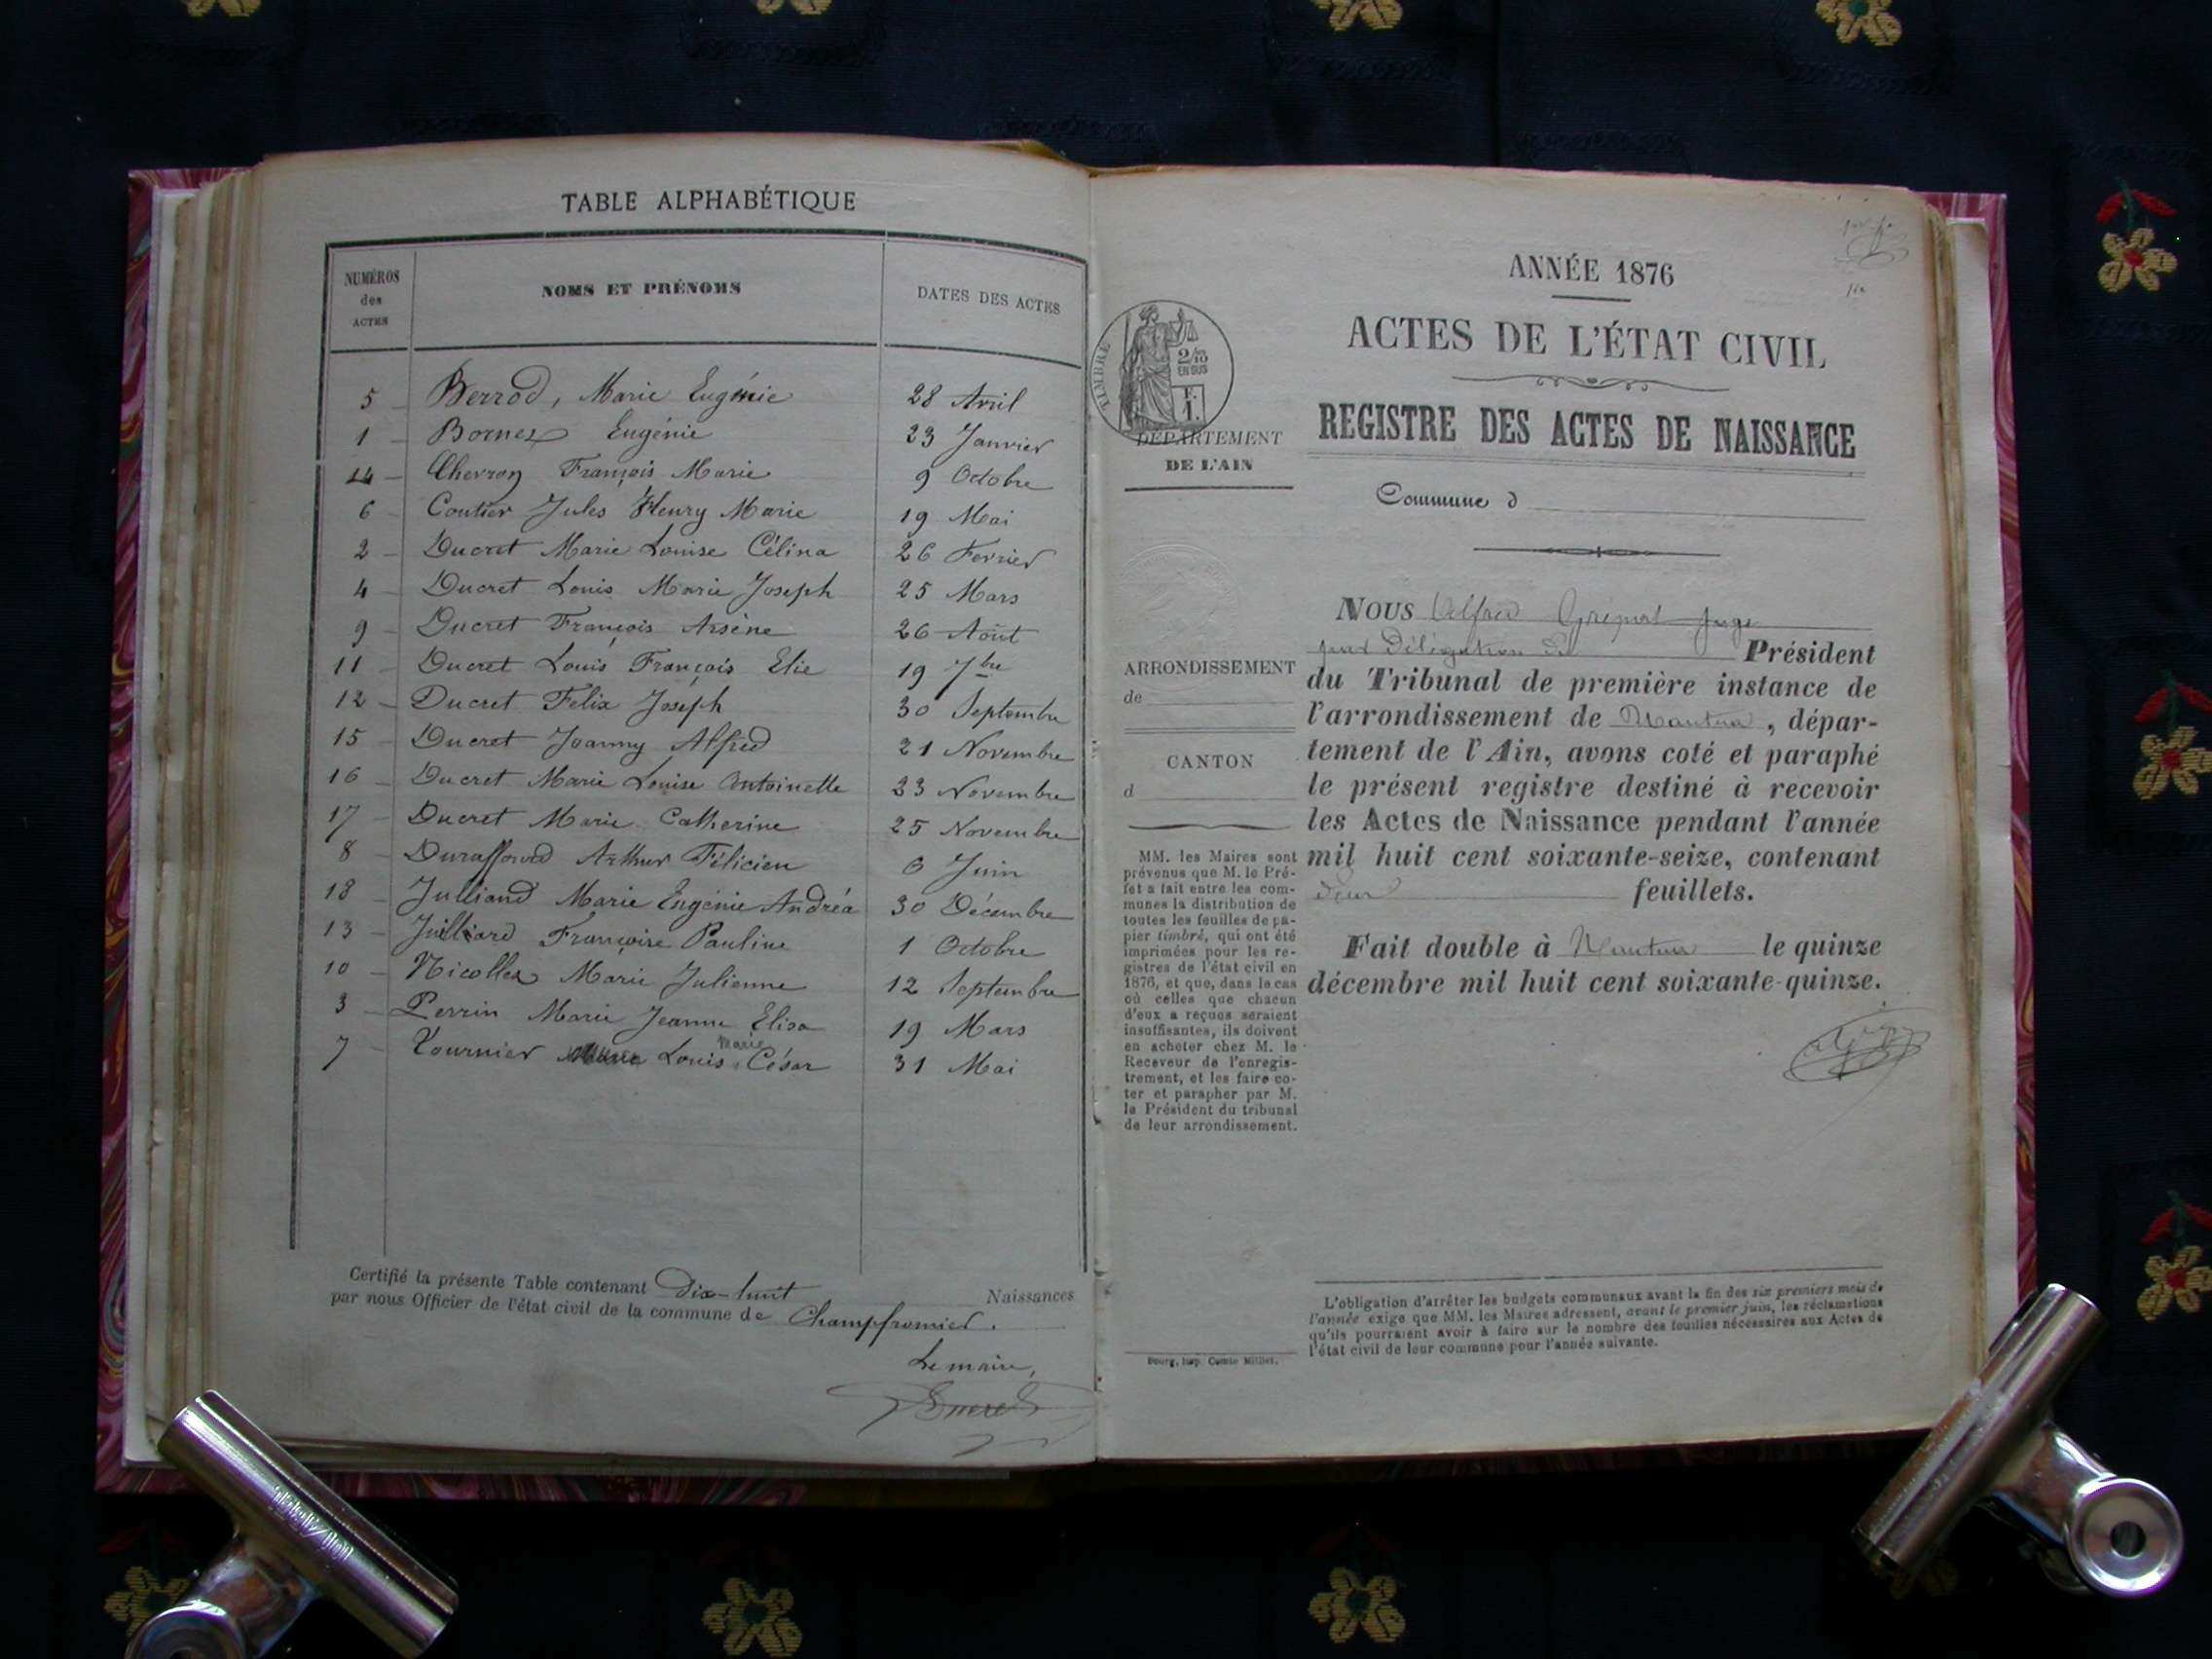 TABLE ALPHABÉTIQUE
NUMÉROS des ACTES NOMS ET PRÉNOMS DATES DES ACTES
5 Berrod, Marie Eugénie 28 Avril
1 Bornex Eugénie 23 Janvier
14 Chevron François Marie 9 Octobre
6 Coutier Jules Henry Marie 19 Mai
2 Ducret Marie Louise Célina 26 Fevrier
4 Ducret Louis Marie Joseph 25 Mars
9 Ducret François Arsène 26 Août
11 Ducret Louis François Elie 19 7bre
12 Ducret Felix Joseph 30 Septembre
15 Ducret Joanny Alfred 21 Novembre
16 Ducret Marie Louise Antoinette 23 Novembre
17 Ducret Marie Catherine 25 Novembre
8 Duraffourd Arthur Félicien 6 Juin
18 Julliard Marie Eugénie Andréa 30 Décembre
13 Juilliard Françoise Pauline 1 Octobre
10 Nicollex Marie Julienne 12 Septembre
3 Perrin Marie Jeanne Elisa 19 Mars
7 Tournier Louis Marie César 31 Mai
Certifié la présente Table contenant Dix-huit Naissances
par nous Officier de l'état civil de la commune de Champfromier.
Le maire,
Ducret
ANNÉE 1876
ACTES DE L'ÉTAT CIVIL
REGISTRE DES ACTES DE NAISSANCE
Commune d
TIMBRE
2/10
EN SUS
F.
1.
DÉPARTEMENT
DE L'AIN
ARRONDISSEMENT
de
CANTON
d
MM. les Maires sont
prévenus que M. le Pré-
fet a fait entre les com-
munes la distribution de
toutes les feuilles de pa-
pier timbré, qui ont été
imprimées pour les re-
gistres de l'état civil en
1876, et que, dans le cas
où celles que chacun
d'eux a reçues seraient
insuffisantes, ils doivent
en acheter chez M. le
Receveur de l'enregis-
trement, et les faire co-
ter et parapher par M.
le Président du tribunal
de leur arrondissement.
Nous Alfred Juge
par Délégation du Président
du Tribunal de première instance de
l'arrondissement de Nantua, dépar-
tement de l'Ain, avons coté et paraphé
le présent registre destiné à recevoir
les Actes de Naissance pendant l'année
mil huit cent soixante-seize, contenant
feuillets.
Fait double à Nantua le quinze
décembre mil huit cent soixante-quinze.
L'obligation d'arrêter les budgets communaux avant la fin des six premiers mois de
l'année exige que MM. les Maires adressent, avant le premier juin, les réclamations
qu'ils pourraient avoir à faire sur le nombre des feuilles nécessaires aux Actes de
l'état civil de leur commune pour l'année suivante.
Bourg, imp. Comte Milliet.